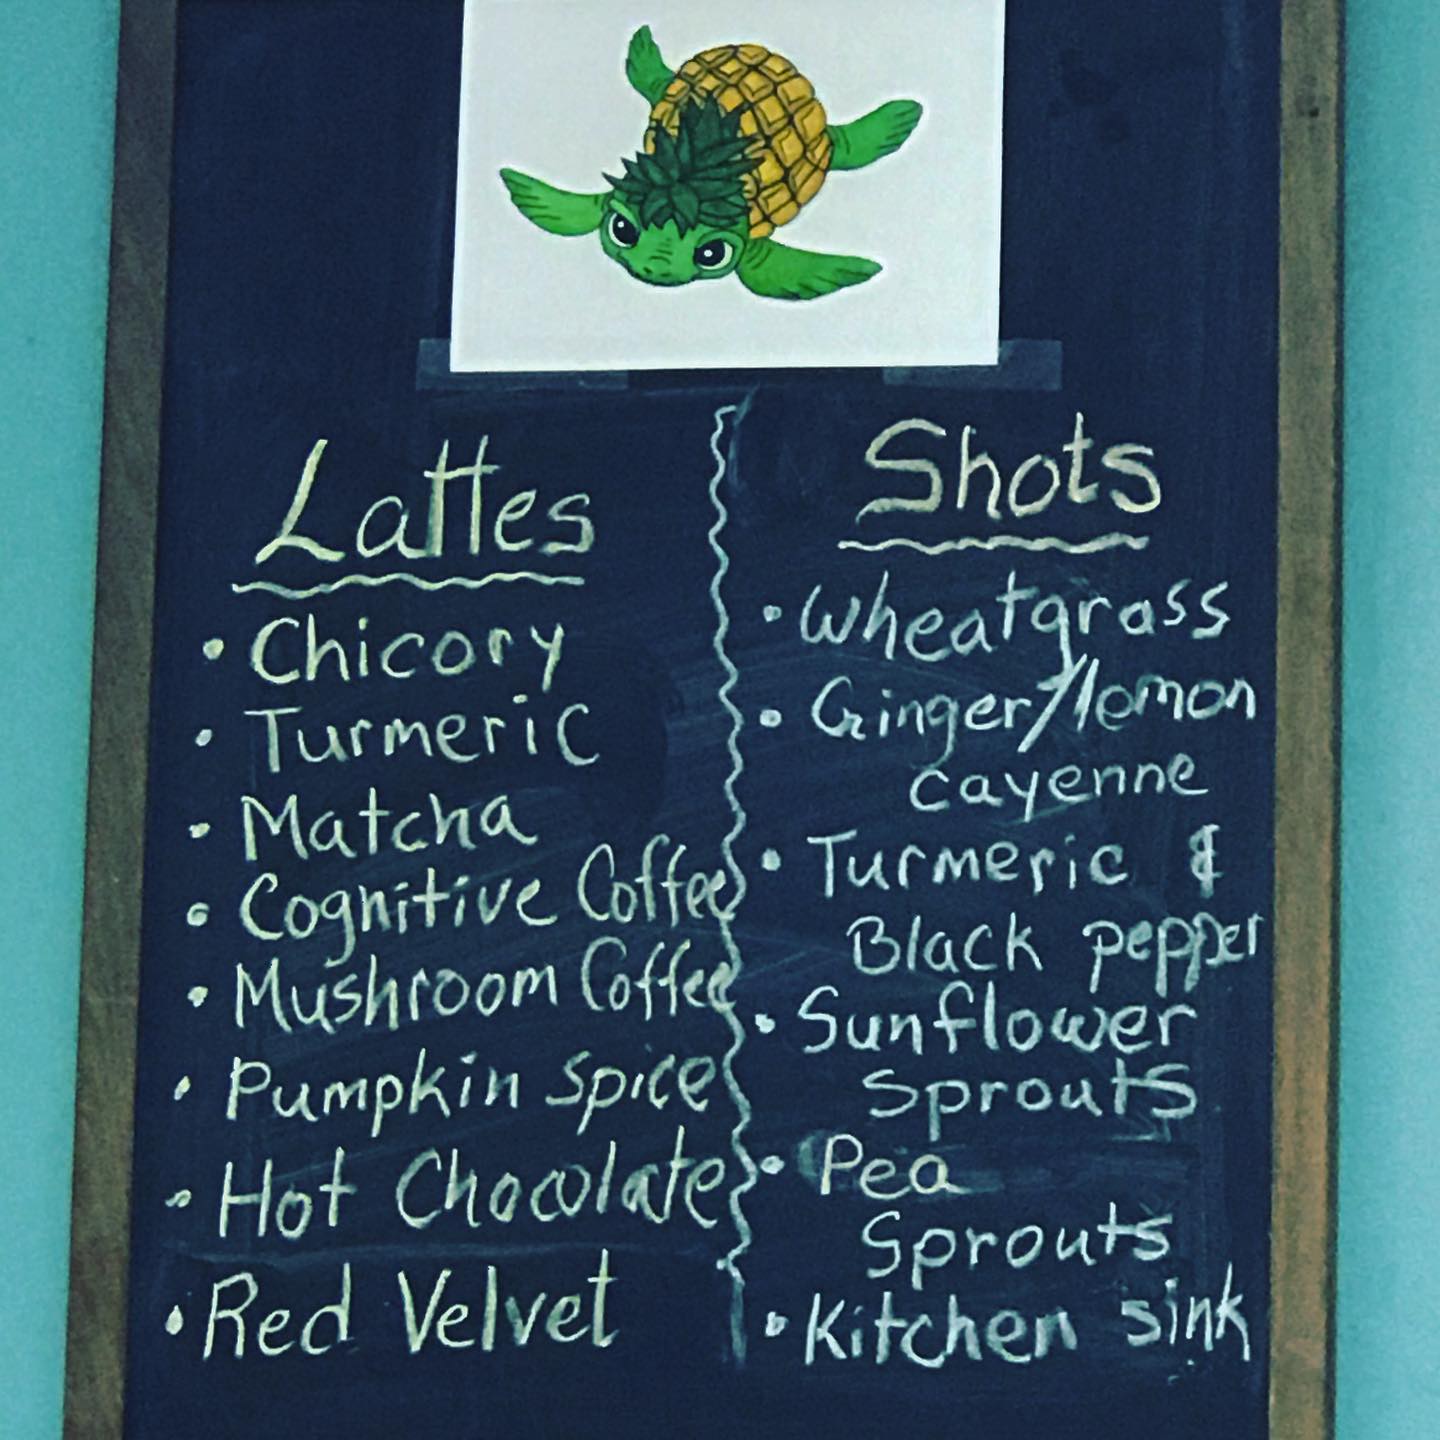 Lattes
• Chicory
• Turmeric
• Matcha
• Cognitive Coffee
• Mushroom Coffee
• Pumpkin Spice
• Hot Chocolate
• Red Velvet
Shots
• Wheatgrass
• Ginger/lemon
cayenne
• Turmeric &
Black pepper
• Sunflower
Sprouts
• Pea
Sprouts
• Kitchen sink